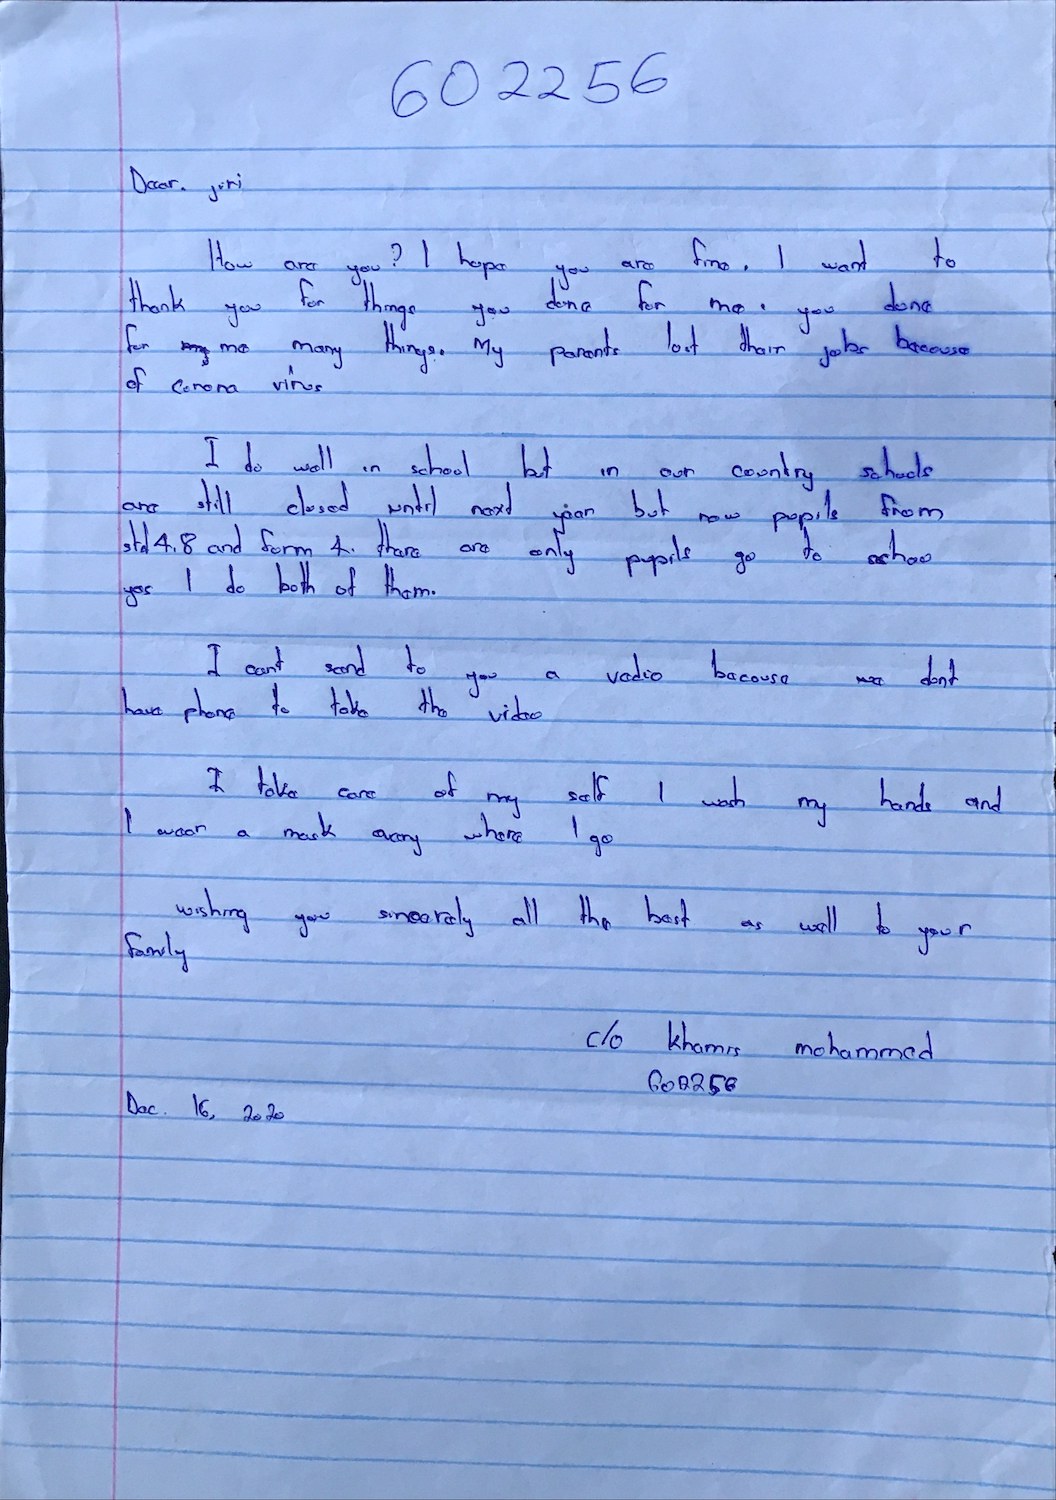 602256
Dear. jiri
How are you? I hope you are fine. I want to
thank you for things you done for me. you done
for me many things. My parents lost their jobs because
of corona virus
I do well in school but in our country schools
are still closed until next year but now pupils from
std 4.8 and form 4. there are only pupils go to schoo
yes I do both of them.
I cant send to you a vedio because we dont
have phone to take the video
I take care of my self I wash my hands and
I wear a mask every where I go
wishing you sincerely all the best as well to your
family
c/o khamis mohammed
602256
Dec. 16, 2020